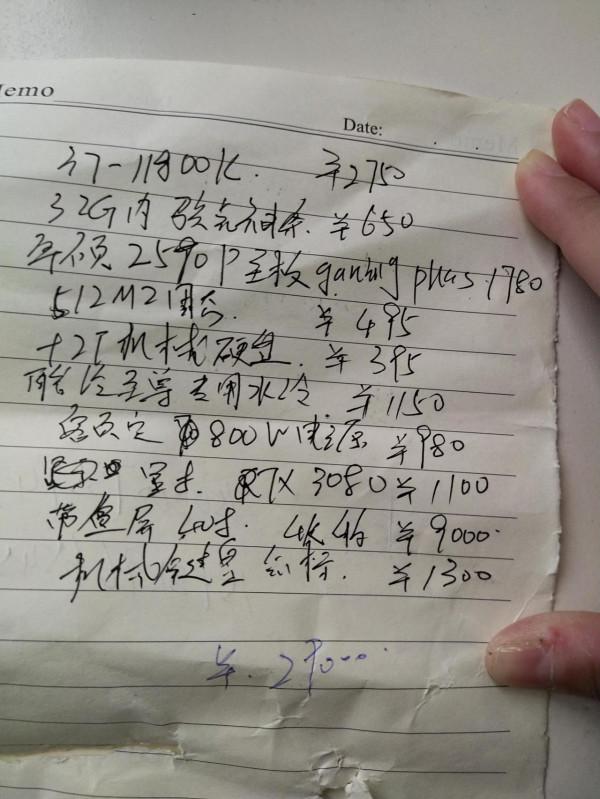 Memo
Date:
i7-11900K. ¥2750
32G内 ¥650
华硕 2590P主板 gaming plus. 1780
512M2固态. ¥495
+2T机械硬盘. ¥395
专用水冷. ¥1150
800W电源 ¥980
RTX 3080 ¥1100
带鱼屏 40寸. 4K的 ¥9000.
机械键盘 ¥1300
¥. 29000.